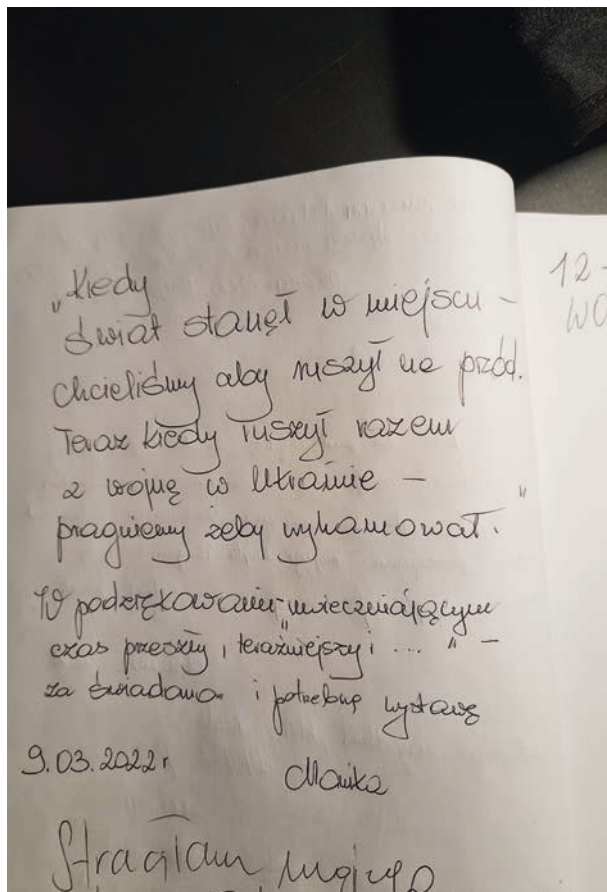 „Kiedy
świat stanął w miejscu –
chcieliśmy aby ruszył na przód.
Teraz kiedy ruszył razem
z wojną w Ukrainie –
pragniemy żeby wyhamował."
W podziękowaniu uwieczniającym
czas przeszły, „teraźniejszy i ..." –
za świadomą i potrzebną wystawę
9.03.2022r Monika
12-
WO
Straciłam mojego